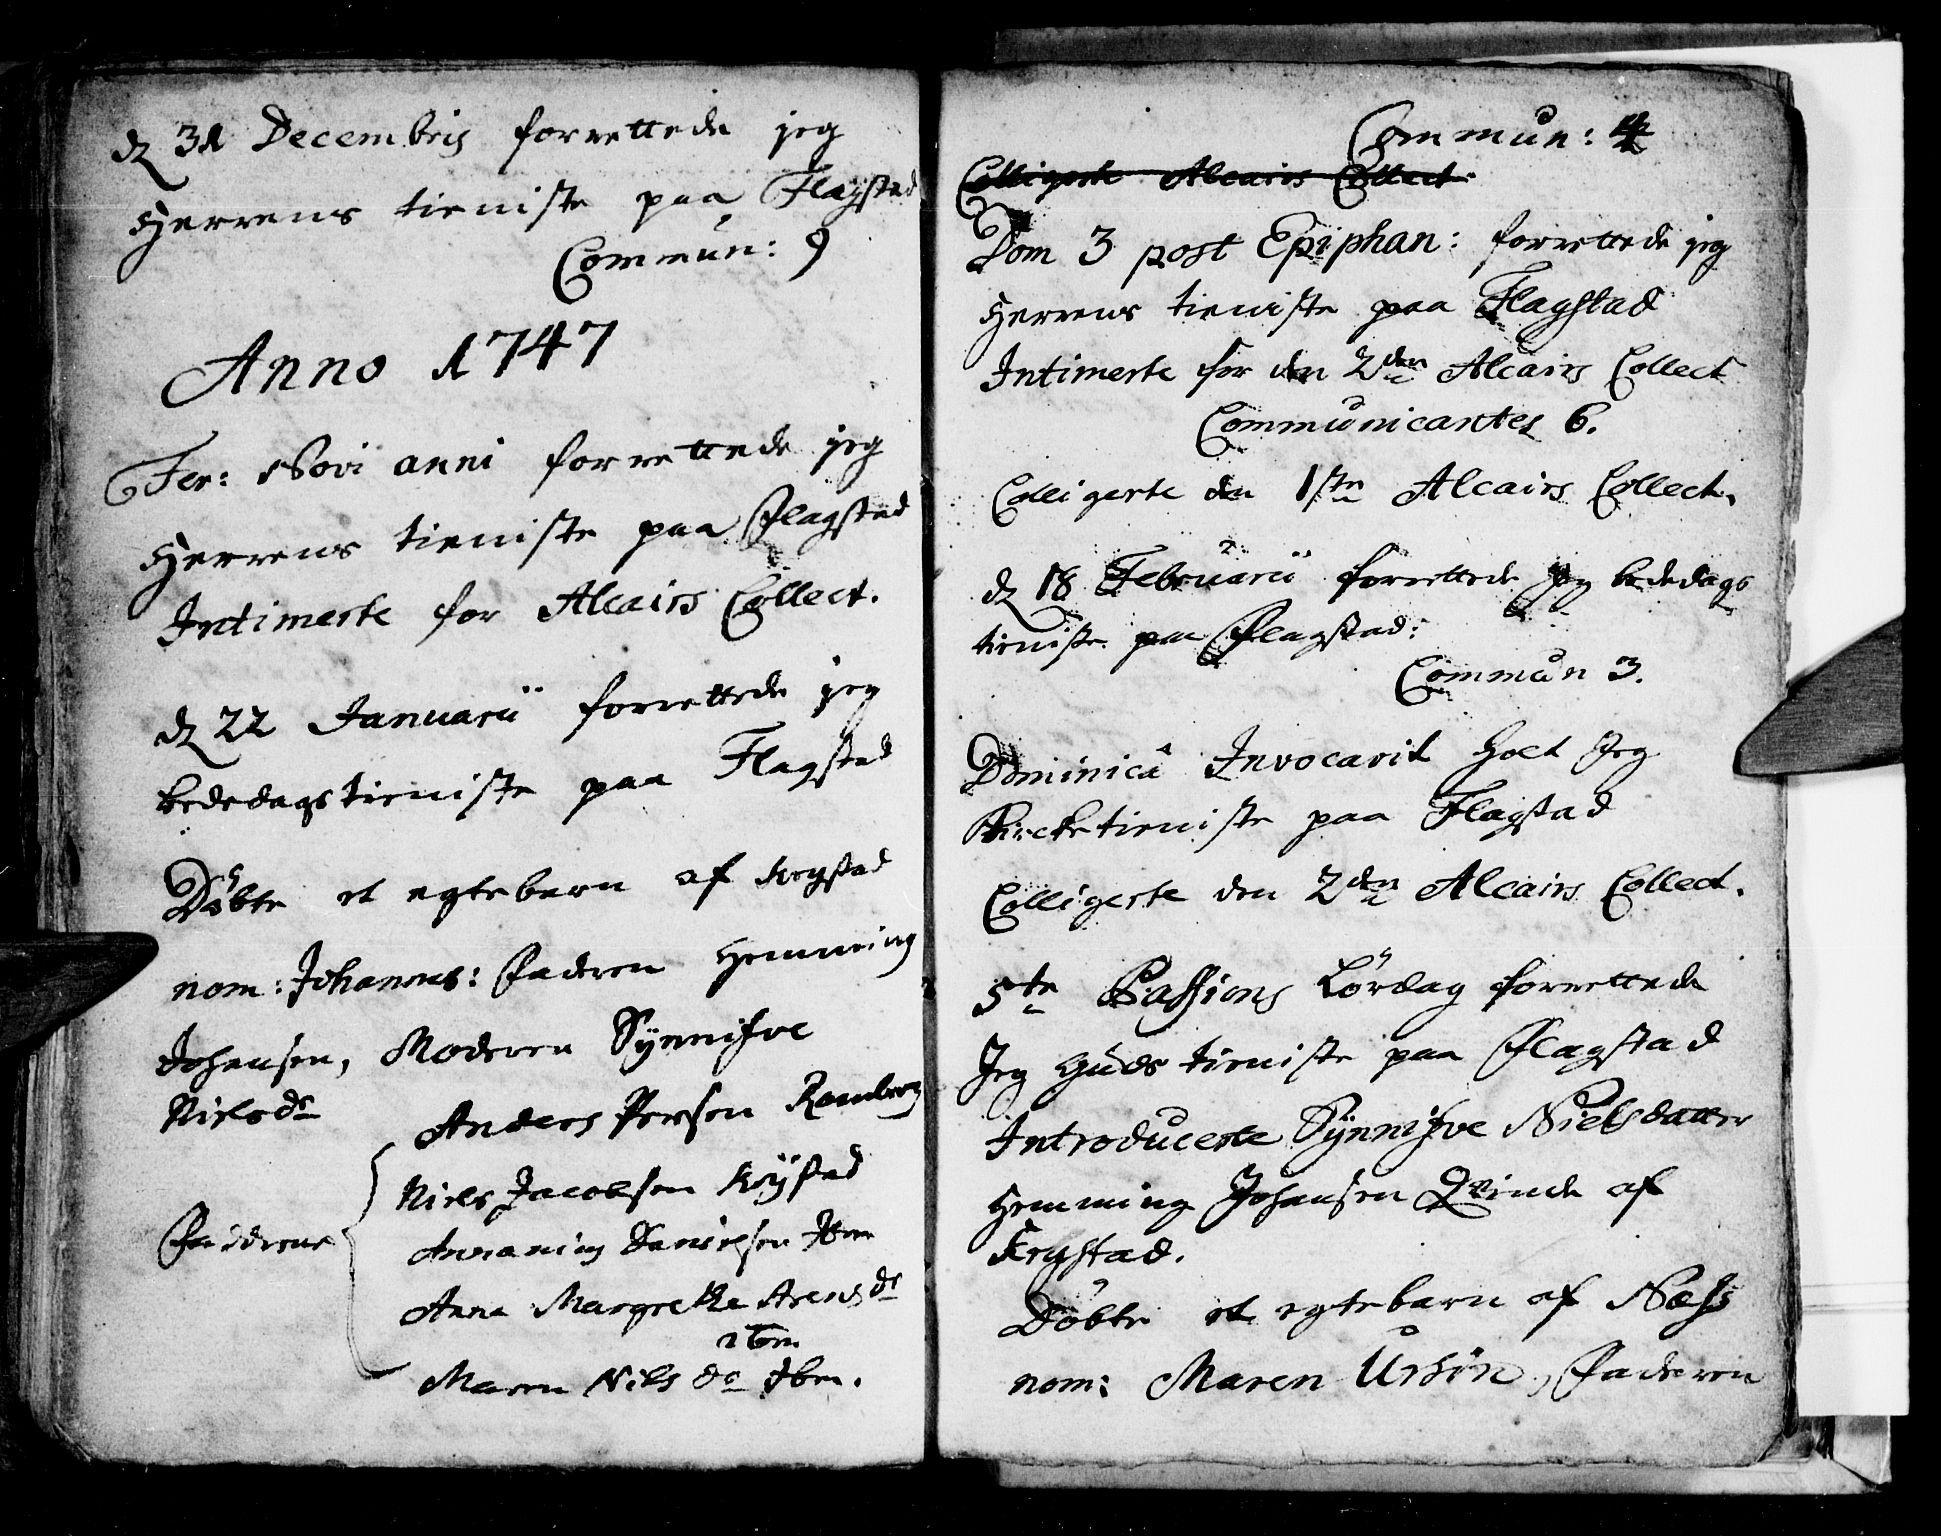 d 31 Decembris forrettede jeg
Herrens tieniste paa Flagstad
Commun: 9
Anno 1747
Fer: Novi anni forrettede jeg
Herrens tieniste paa Flagstad
Intimerte for Alcairs Collect.
d 22 Januarii forrettede jeg
bededags tieniste paa Flagstad
Döbte et egtebarn af
nom: Johannes: Faderen Hemming
Johansen, Moderen Synnifve
Nielsdr
Anders Persen Ramberg
Niels Jacobsen
Fadderne
Danielsen
Anna Margrethe Arensdr
item
Maren Nilsdr
Commun: 4
Colligerte Alcairs Collect
Dom 3 post Epiphan: forrettede jeg
Herrens tieniste paa Flagstad
Intimerte for den 2den Alcairs Collect
Communicantes 6.
Colligerte den 1ste Alcairs Collect.
d 18 Februarii forrettede Jeg bededags
tieniste paa Flagstad:
Commun 3.
Dominica Invocavit holt Jeg
Kircketieniste paa Flagstad
Colligerte den 2den Alcairs Collect.
5te Passions Lördag forrettede
Jeg Guds tieniste paa Flagstad
Introducerte Synnifve Nielsdatter
Hemming Johansen Qvinde af
Krystad.
Döbte et egtebarn af Næss
nom: Maren Ursin, Faderen